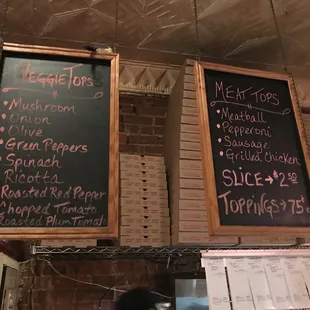 Veggie Tops
• Mushroom
• Onion
• Olive
• Green Peppers
• Spinach
• Ricotta
• Roasted Red Pepper
• Chopped Tomato
• Roasted Plum Tomato
Meat Tops
• Meatball
• Pepperoni
• Sausage
• Grilled Chicken
Slice → $2.50
Toppings → 75¢